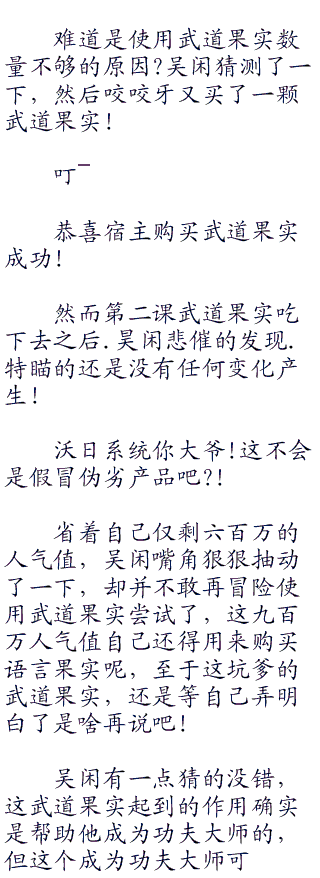 难道是使用武道果实数
量不够的原因?吴闲猜测了一
下，然后咬咬牙又买了一颗
武道果实!
叮¯
恭喜宿主购买武道果实
成功!
然而第二课武道果实吃
下去之后.吴闲悲催的发现.
特瞄的还是没有任何变化产
生!
沃日系统你大爷!这不会
是假冒伪劣产品吧?!
省着自己仅剩六百万的
人气值，吴闲嘴角狠狠抽动
了一下，却并不敢再冒险使
用武道果实尝试了，这九百
万人气值自己还得用来购买
语言果实呢，至于这坑爹的
武道果实，还是等自己弄明
白了是啥再说吧!
吴闲有一点猜的没错，
这武道果实起到的作用确实
是帮助他成为功夫大师的，
但这个成为功夫大师可